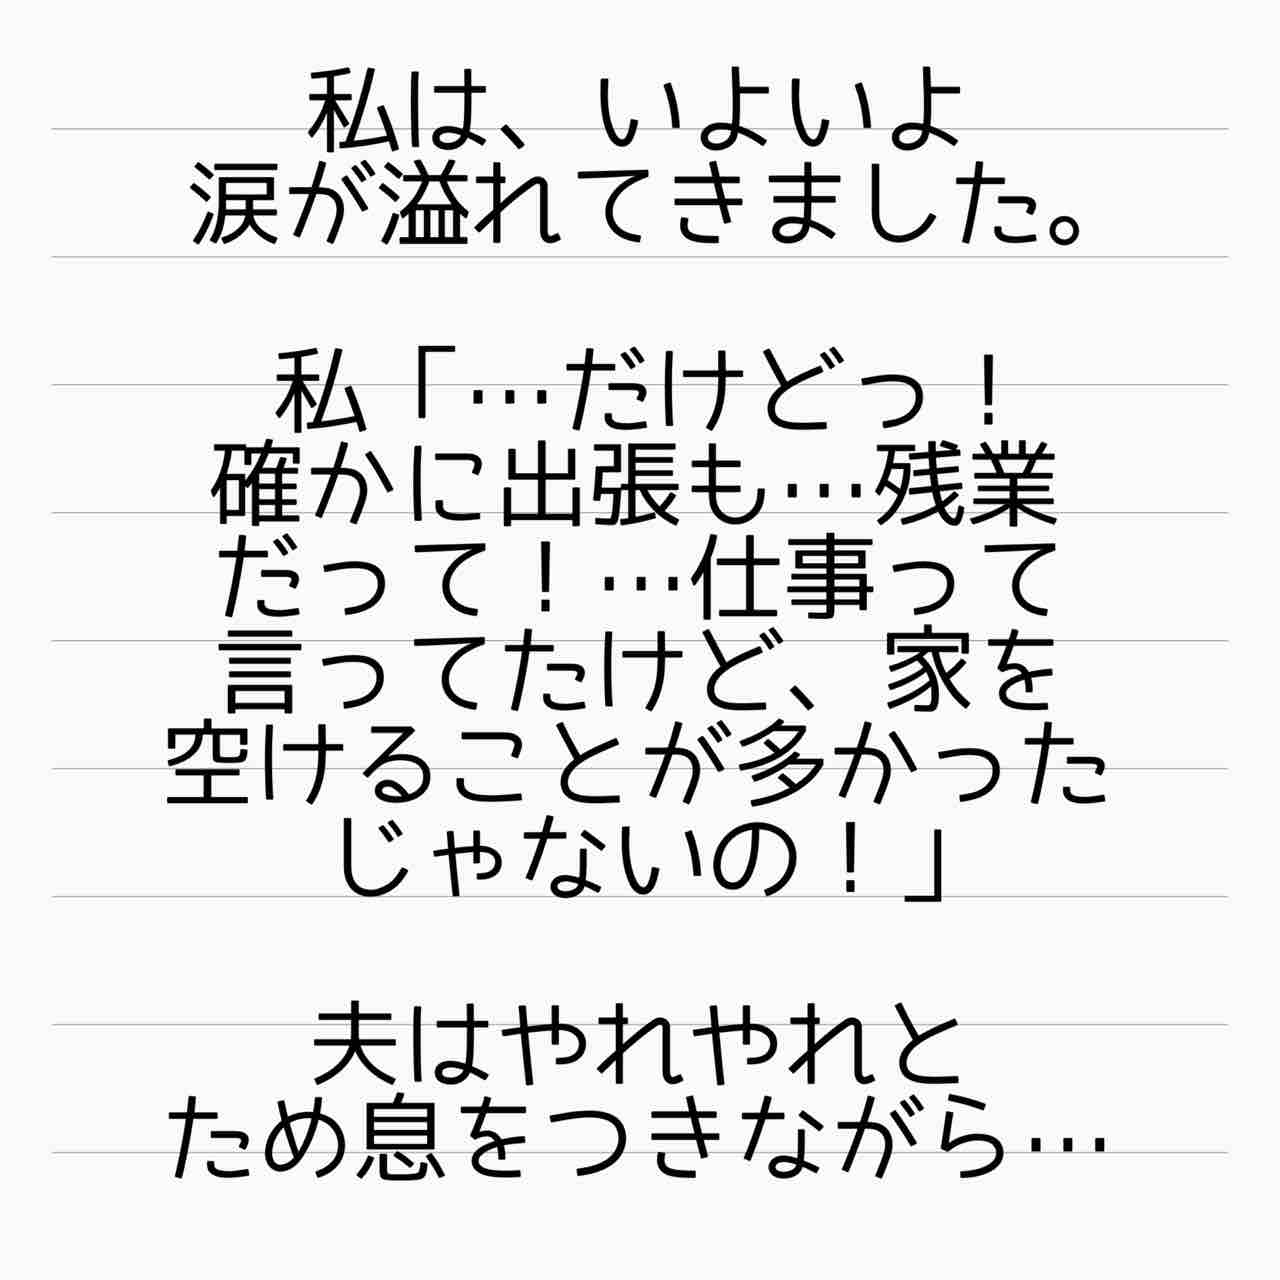 私は、いよいよ
涙が溢れてきました。
私「…だけどっ！
確かに出張も…残業
だって！…仕事って
言ってたけど、家を
空けることが多かった
じゃないの！」
夫はやれやれと
ため息をつきながら…